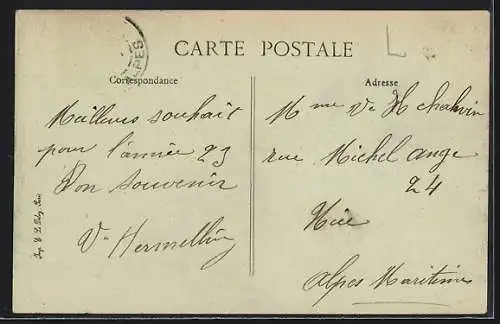 CARTE POSTALE
Correspondance
Adresse
Meilleurs souhait
pour l'année 23
Bon souvenir
Vve Hermelling
Mme Vve H
rue Michel Ange
24
Nice
Alpes Maritimes
ALPES